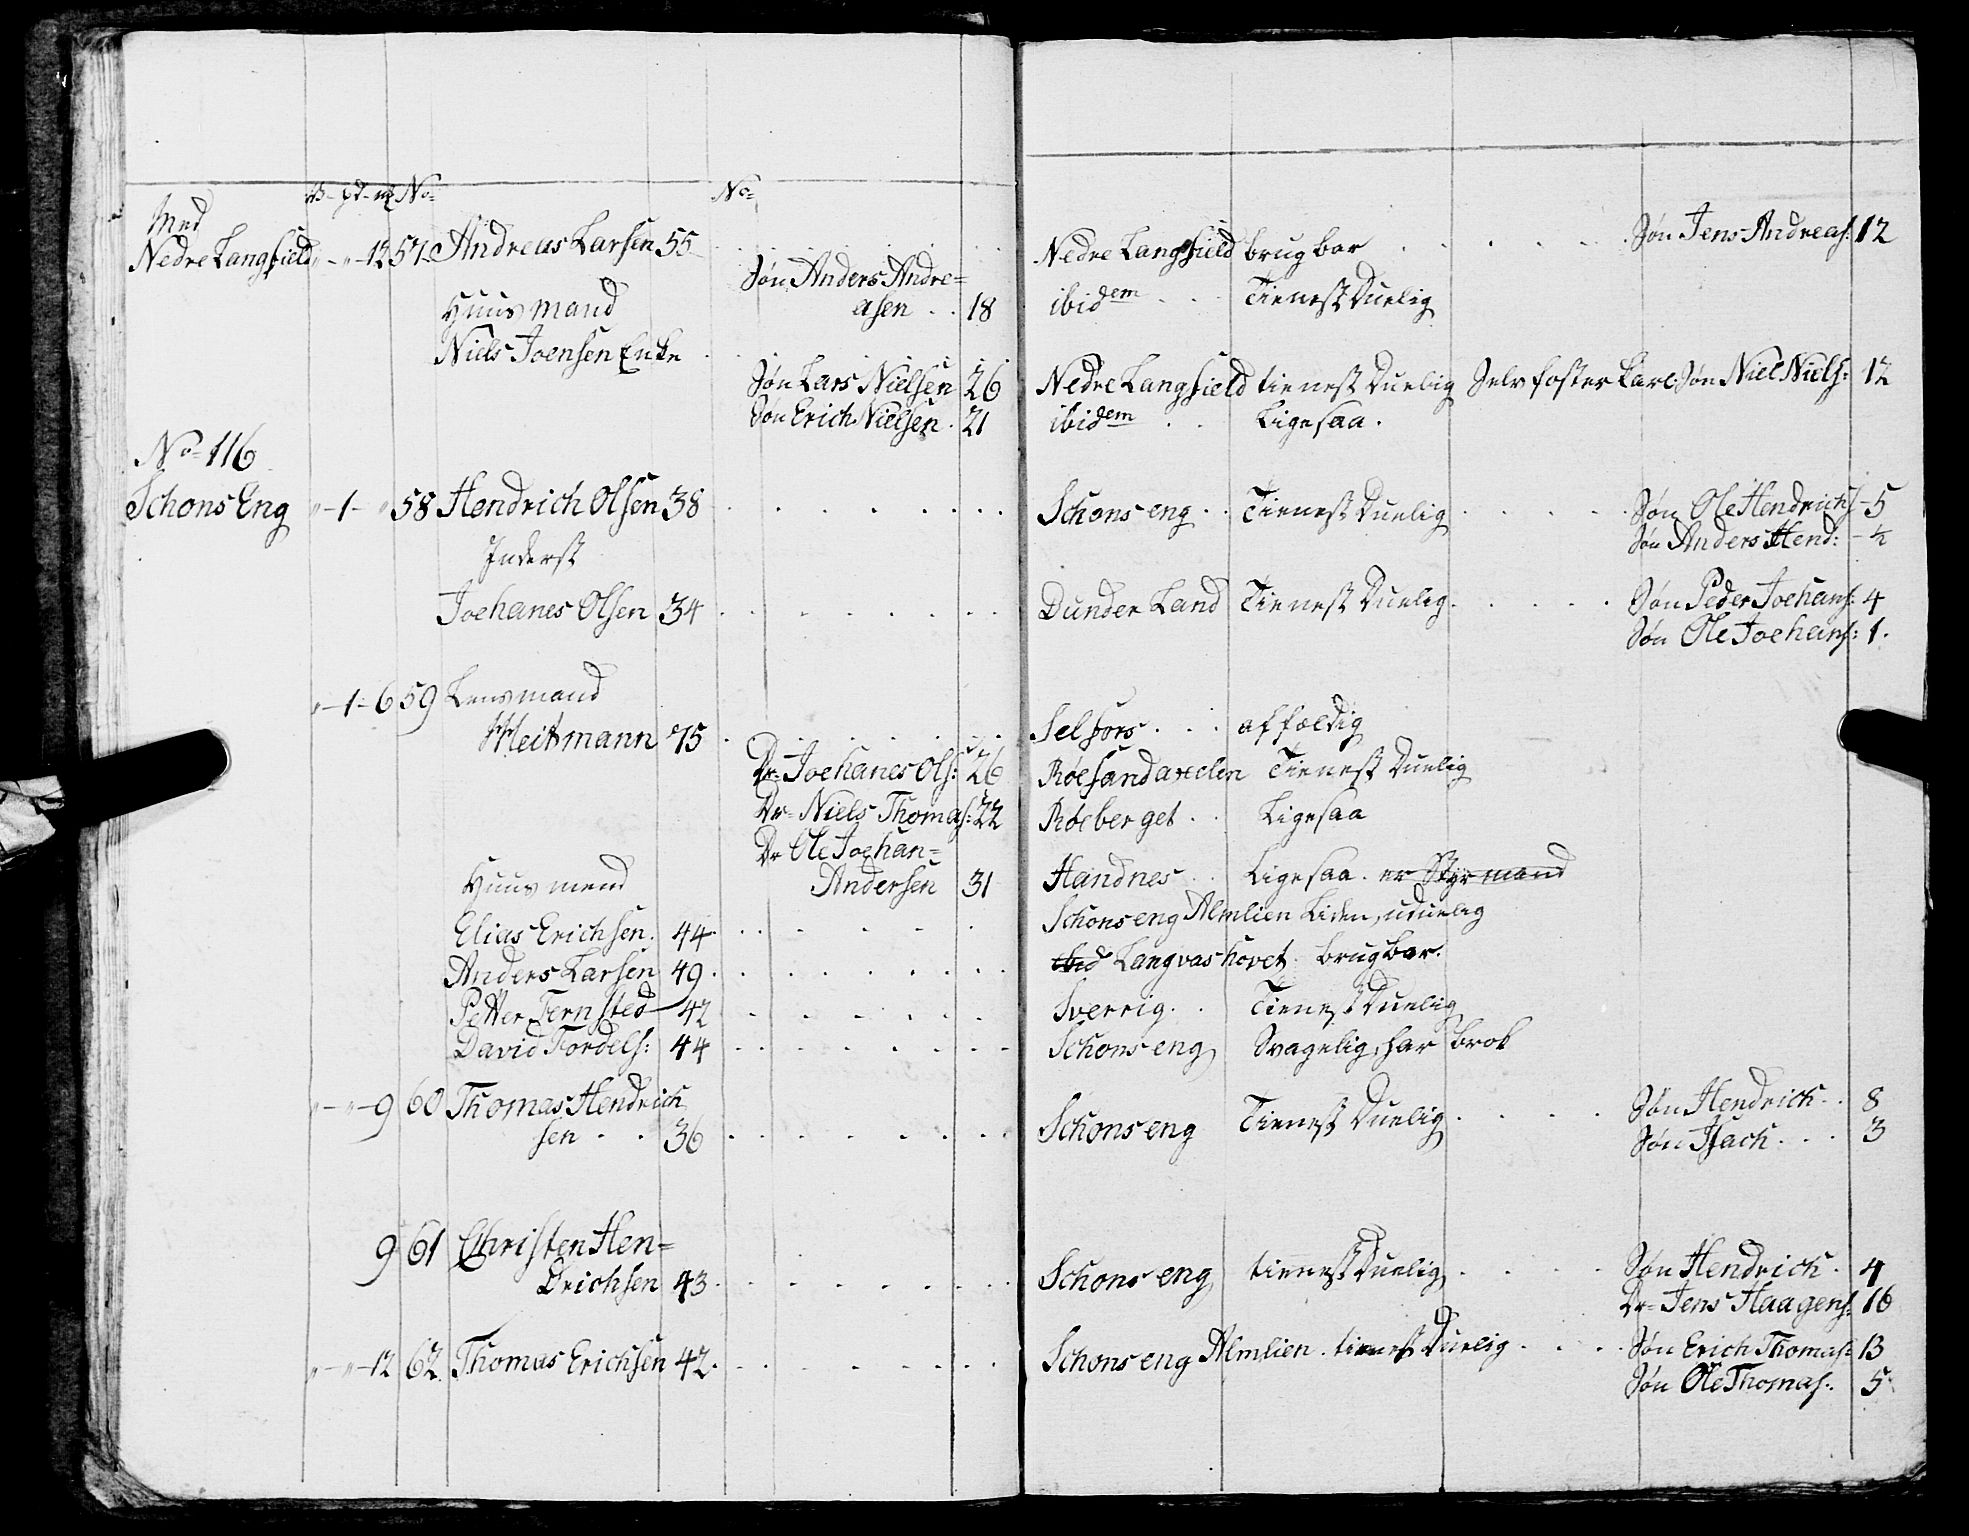 V- pd- mk No= No=
Med
Nedre Langfield „-„-12 57 Andreas Larsen 55 Nedre Langfield brugbar Søn Jens Andreas: 12
Søn Anders Andre=
Huusmand asen 18 ibidem Tienest Duelig
Niels Joensen Enke
Søn Lars Nielsen 26 Nedre Langfield tienest Duelig Selv foster Karl Søn Niel Niels: 12
Søn Erich Nielsen 21 ibidem Ligesaa.
No= 116
Schons Eng „-1-„ 58 Hendrich Olsen 38 Schonseng Tienest Duelig Søn Ole Hendrichs 5
Søn Anders Hend: ½
Inderst
Joehanes Olsen 34 Dunder Land Tienest Duelig Søn Peder Joehans: 4
Søn Ole Joehans: 1.
„-1-6 59 Lensmand
Meitmann 75 Selfors affældig
Dr= Joehanes Ols: 26 Røesandaxelen Tienest Duelig
Dr= Niels Thomas: 22 Røeberget Ligesaa
Dr Ole Joehan=
Huusmend Andersen 31 Handnes Ligesaa. er Styrmand
Elias Erichsen. 44 Schonseng Almlien Liden, uduelig
Anders Larsen 49. ibid Langvashovet brugbar.
Petter Fernsted 42 Sverrig Tienest Duelig
David Fordels: 44 Schonseng Svagelig, har Brok
„-„-9 60 Thomas Hendrich
sen 36 Schonseng Tienest Duelig Søn Hendrich 8
Søn Isach 3
9 61 Christen Hen=
Drichsen 43 Schonseng tienest Duelig Søn Hendrich 4
Dr= Jens Haagens: 16
„-„-12 62 Thomas Erichsen 42 Schonseng Almlien. tienest Duelig Søn Erich Thomas: 13
Søn Ole Thomas: 5